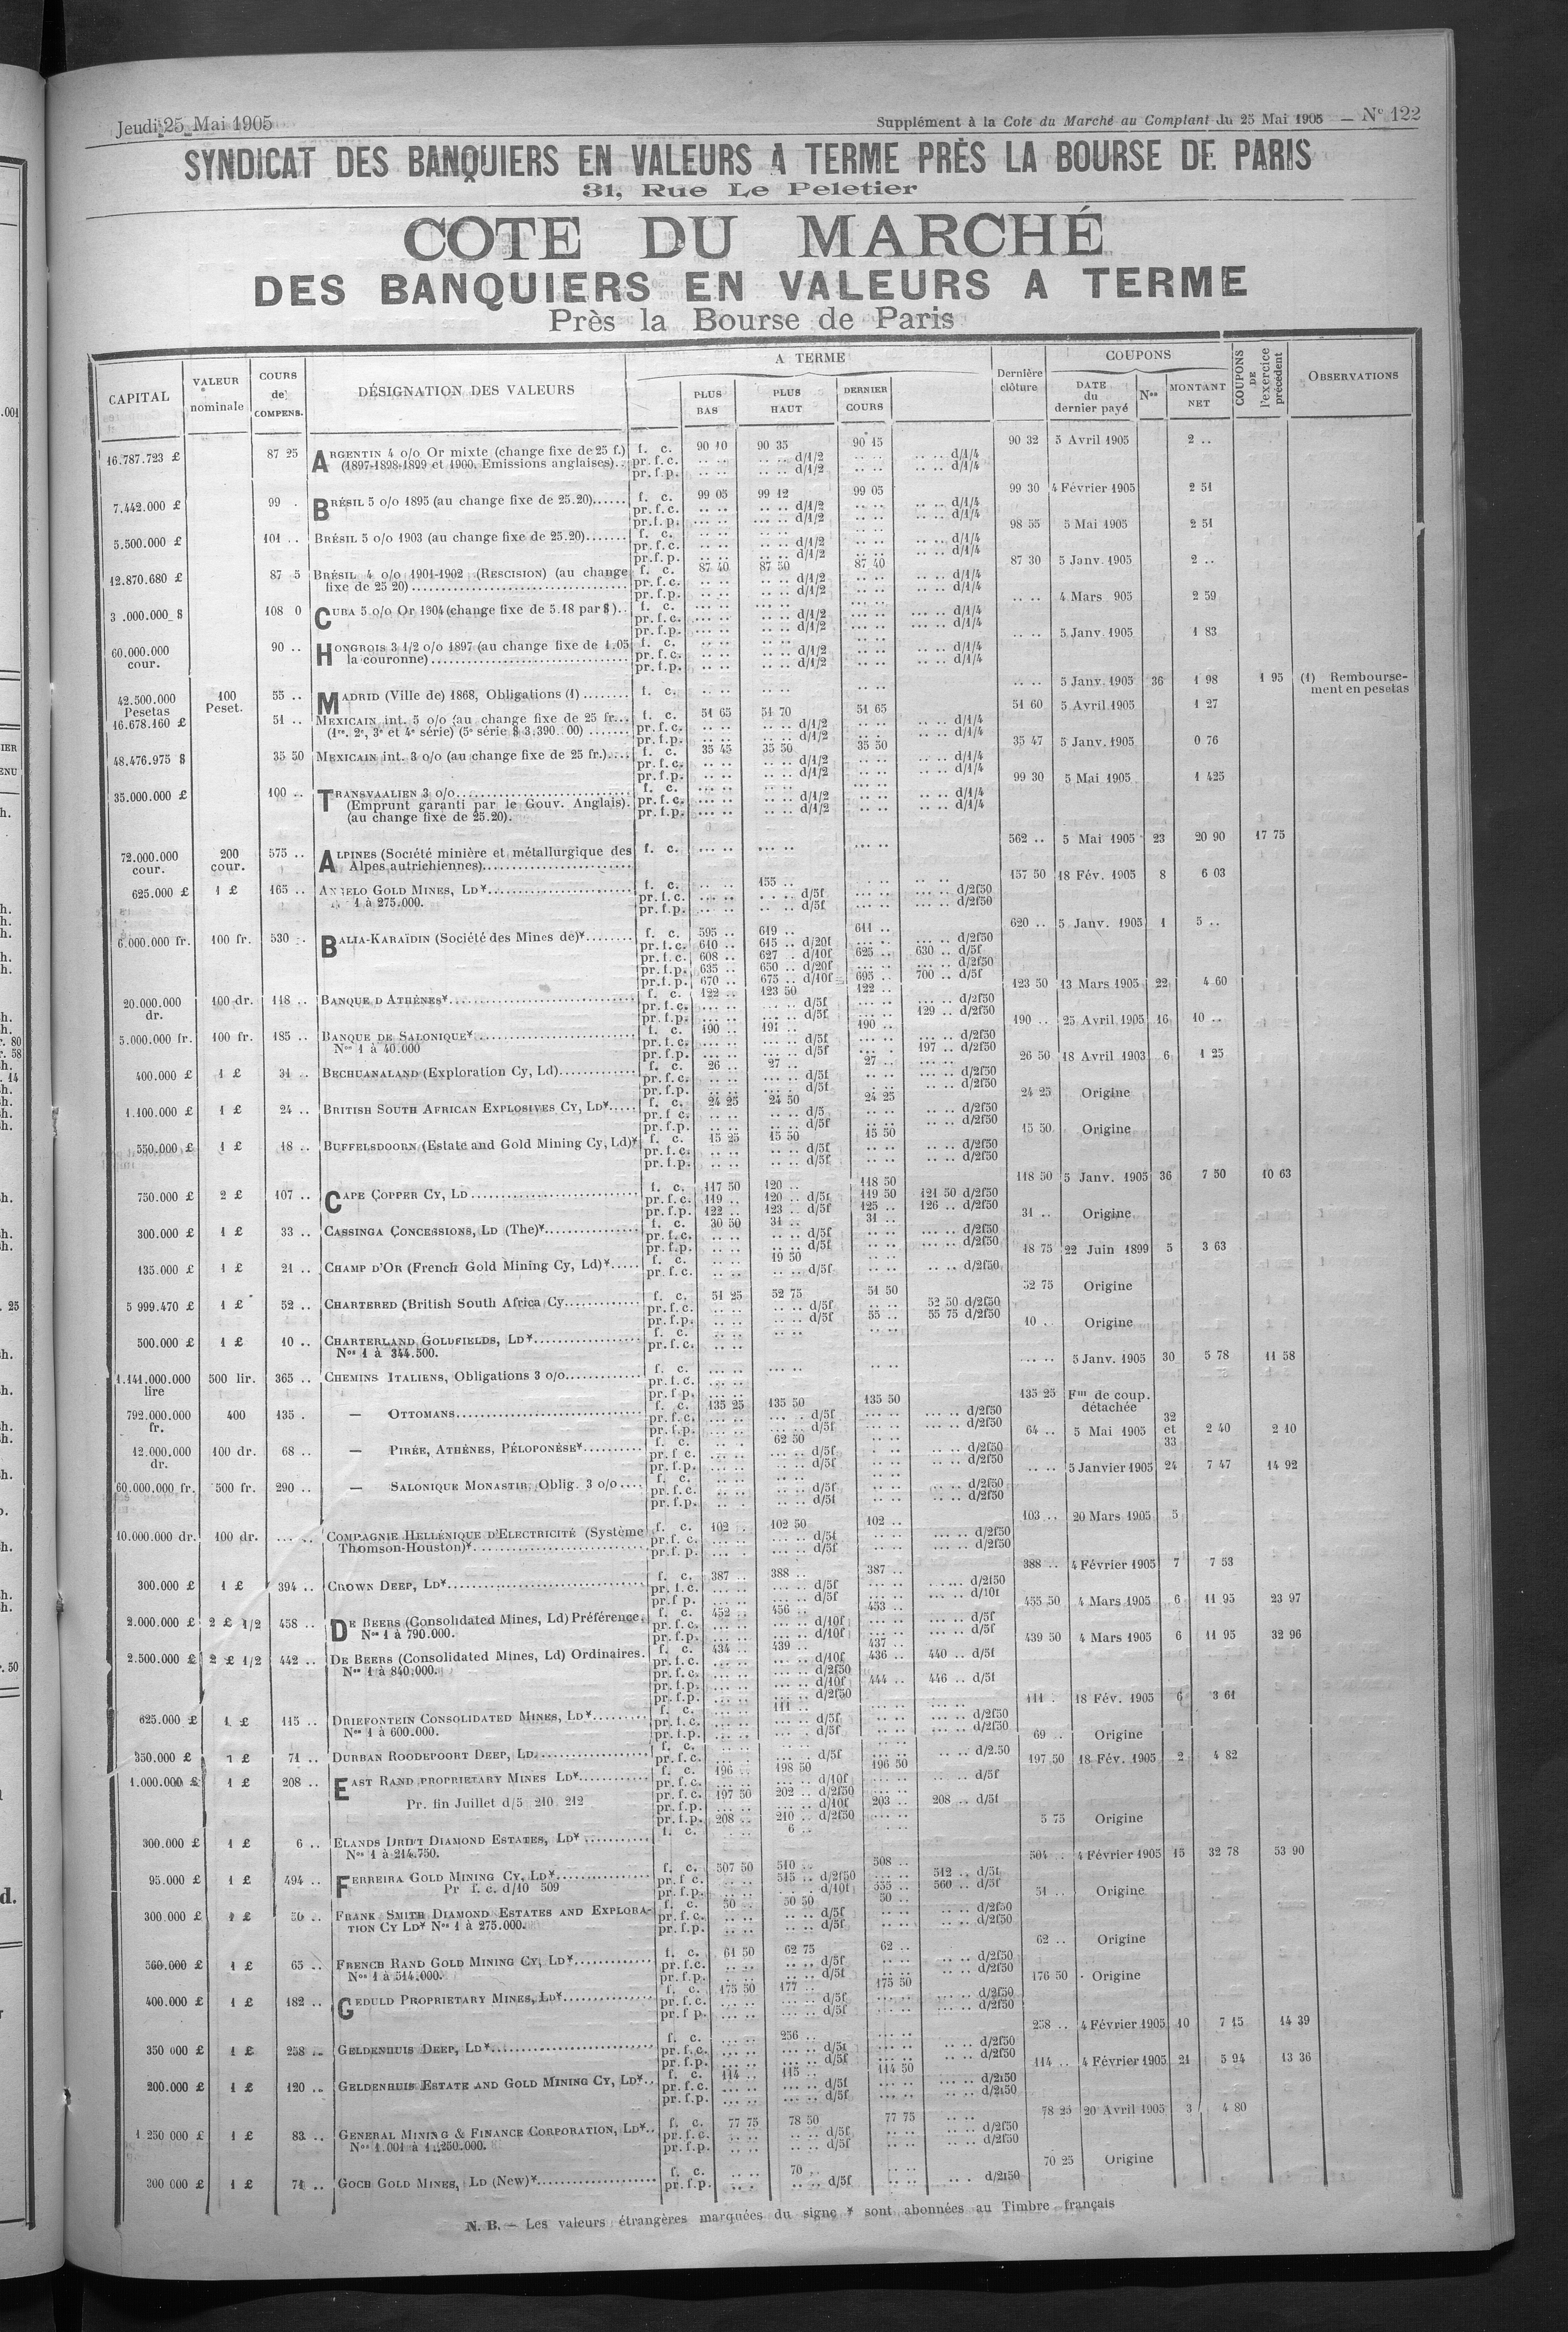 Jeudi 25 Mai 1905
Supplément à la Cote du Marché au Comptant du 25 Mai 1905 — N° 122
SYNDICAT DES BANQUIERS EN VALEURS A TERME PRÈS LA BOURSE DE PARIS
31, Rue Le Peletier
COTE DU MARCHÉ
DES BANQUIERS EN VALEURS A TERME
Près la Bourse de Paris
CAPITAL VALEUR nominale COURS de COMPENS. DÉSIGNATION DES VALEURS A TERME PLUS BAS PLUS HAUT DERNIER COURS Dernière clôture COUPONS DATE du dernier payé Nos MONTANT NET COUPONS DE l'exercice précédent OBSERVATIONS
16.787.723 £ 87 25 ARGENTIN 4 o/o Or mixte (change fixe de 25 f.) f. c. 90 10 90 35 90 15 90 32 5 Avril 1905 2 ..
(1897-1898-1899 et 1900. Emissions anglaises).. pr. f. c. d/1/2 d/1/4
pr. f. p. d/1/2 d/1/4
7.442.000 £ 99 . BRÉSIL 5 o/o 1895 (au change fixe de 25.20)...... f. c. 99 05 99 12 99 05 99 30 4 Février 1905 2 51
pr. f. c. d/1/2 d/1/4
pr. f. p. d/1/2 d/1/4
5.500.000 £ 101 .. BRÉSIL 5 o/o 1903 (au change fixe de 25.20)....... f. c. 98 55 5 Mai 1905 2 51
pr. f. c. d/1/2 d/1/4
pr. f. p. d/1/2 d/1/4
12.870.680 £ 87 5 BRÉSIL 4 o/o 1901-1902 (RESCISION) (au change f. c. 87 40 87 50 87 40 87 30 5 Janv. 1905 2 ..
fixe de 25 20) pr. f. c. d/1/2 d/1/4
pr. f. p. d/1/2 d/1/4
3 .000.000 $ 108 0 CUBA 5 o/o Or 1904 (change fixe de 5.18 par $).. f. c. .. .. 4 Mars 905 2 59
pr. f. c. d/1/2 d/1/4
pr. f. p. d/1/2 d/1/4
60.000.000 cour. 90 .. HONGROIS 3 1/2 o/o 1897 (au change fixe de 1.05 f. c. .. .. 5 Janv. 1905 1 83
la couronne) pr. f. c. d/1/2 d/1/4
pr. f. p. d/1/2 d/1/4
42.500.000 Pesetas 100 Peset. 55 .. MADRID (Ville de) 1868, Obligations (1) ........ f. c. .. .. 5 Janv. 1905 36 1 98 1 95 (1) Remboursement en pesetas
16.678.160 £ 51 .. MEXICAIN int. 5 o/o (au change fixe de 25 fr... f. c. 51 65 51 70 51 65 51 60 5 Avril 1905 1 27
(1re, 2e, 3e et 4e série) (5e série $ 3.390. 00) ....... pr. f. c. d/1/2 d/1/4
pr. f. p. d/1/2 d/1/4
48.476.975 $ 35 50 MEXICAIN int. 3 o/o (au change fixe de 25 fr.).... f. c. 35 45 35 50 35 50 35 47 5 Janv. 1905 0 76
pr. f. c. d/1/2 d/1/4
pr. f. p. d/1/2 d/1/4
35.000.000 £ 100 .. TRANSVAALIEN 3 o/o f. c. 99 30 5 Mai 1905 1 425
(Emprunt garanti par le Gouv. Anglais). pr. f. c. d/1/2 d/1/4
(au change fixe de 25.20). pr. f. p. d/1/2 d/1/4
72.000.000 cour. 200 cour. 575 .. ALPINES (Société minière et métallurgique des f. c. 562 .. 5 Mai 1905 23 20 90 17 75
Alpes autrichiennes)
625.000 £ 1 £ 165 .. ANGELO GOLD MINES, LD¥ f. c. 155 .. 157 50 18 Fév. 1905 8 6 03
1 à 275.000. pr. f. c. d/5f d/2f50
pr. f. p. d/5f d/2f50
6.000.000 fr. 100 fr. 530 .. BALIA-KARAÏDIN (Société des Mines de)¥ f. c. 595 .. 619 .. 611 .. 620 .. 5 Janv. 1905 1 5 ..
pr. f. c. 610 .. 615 .. d/20f d/2f50
pr. f. c. 608 .. 627 . d/10f 625 .. 630 .. d/5f
pr. f. p. 635 .. 650 .. d/20f d/2f50
pr. f. p. 670 .. 675 .. d/10f 695 .. 700 .. d/5f
20.000.000 dr. 100 dr. 118 .. BANQUE D'ATHÈNES¥ f. c. 122 .. 123 50 122 .. 123 50 13 Mars 1905 22 4 60
pr. f. c. d/5f d/2f50
pr. f. p. d/5f 129 .. d/2f50
5.000.000 fr. 100 fr. 185 .. BANQUE DE SALONIQUE¥ f. c. 190 .. 191 .. 190 .. 190 .. 25 Avril 1905 16 10 ..
Nos 1 à 40.000 pr. f. c. d/5f d/2f50
pr. f. p. d/5f 197 .. d/2f50
400.000 £ 1 £ 31 .. BECHUANALAND (Exploration Cy, Ld) f. c. 26 .. 27 .. 27 .. 26 50 18 Avril 1903 6 1 25
pr. f. c. d/5f d/2f50
pr. f. p. d/5f d/2f50
1.100.000 £ 1 £ 24 .. BRITISH SOUTH AFRICAN EXPLOSIVES CY, LD¥ f. c. 24 25 24 50 24 25 24 25 Origine
pr. f. c. d/5 d/2f50
pr. f. p. d/5f d/2f50
550.000 £ 1 £ 18 .. BUFFELSDOORN (Estate and Gold Mining Cy, Ld)¥ f. c. 15 25 15 50 15 50 15 50 Origine
pr. f. c. d/5f d/2f50
pr. f. p. d/5f d/2f50
750.000 £ 2 £ 107 .. CAPE COPPER CY, LD f. c. 117 50 120 .. 118 50 118 50 5 Janv. 1905 36 7 50 10 63
pr. f. c. 119 .. 120 .. d/5f 119 50 121 50 d/2f50
pr. f. p. 122 .. 123 .. d/5f 125 .. 126 .. d/2f50
300.000 £ 1 £ 33 .. CASSINGA CONCESSIONS, LD (The)¥ f. c. 30 50 31 .. 31 .. 31 .. Origine
pr. f. c. d/5f d/2f50
pr. f. p. d/5f d/2f50
135.000 £ 1 £ 21 .. CHAMP D'OR (French Gold Mining Cy, Ld)¥ f. c. 19 50 18 75 22 Juin 1899 5 3 63
pr. f. c. d/5f d/2f50
5 999.470 £ 1 £ 52 .. CHARTERED (British South Africa Cy f. c. 51 25 52 75 51 50 52 75 Origine
pr. f. c. d/5f 52 50 d/2f50
pr. f. p. d/5f 55 .. 55 75 d/2f50
500.000 £ 1 £ 10 .. CHARTERLAND GOLDFIELDS, LD¥ f. c. 10 .. Origine
Nos 1 à 344.500. pr. f. c.
1.141.000.000 lire 500 lir. 365 .. CHEMINS ITALIENS, Obligations 3 o/o f. c. .. .. 5 Janv. 1905 30 5 78 11 58
pr. f. c.
pr. f. p.
792.000.000 fr. 400 135 . — OTTOMANS f. c. 135 25 135 50 135 50 135 25 Flle de coup. détachée
pr. f. c. d/5f d/2f50
pr. f. p. d/5f d/2f50
12.000.000 dr. 100 dr. 68 .. — PIRÉE, ATHÈNES, PÉLOPONÈSE¥ f. c. 62 50 64 .. 5 Mai 1905 32 et 33 2 40 2 10
pr. f. c. d/5f d/2f50
pr. f. p. d/5f d/2f50
60.000.000 fr. 500 fr. 290 .. — SALONIQUE MONASTIR, Oblig. 3 o/o .... f. c. .. .. 5 Janvier 1905 24 7 47 14 92
pr. f. c. d/5f d/2f50
pr. f. p. d/5f d/2f50
10.000.000 dr. 100 dr. .. .. COMPAGNIE HELLÉNIQUE D'ELECTRICITÉ (Système f. c. 102 . 102 50 102 .. 103 .. 20 Mars 1905 5
Thomson-Houston)¥ pr. f. c. d/5f d/2f50
pr. f. p. d/5f d/2f50
300.000 £ 1 £ 394 .. CROWN DEEP, LD¥ f. c. 387 .. 388 .. 387 .. 388 .. 4 Février 1905 7 7 53
pr. f. c. d/5f d/2f50
pr. f. p. d/5f d/10f
2.000.000 £ 2 £ 1/2 458 .. DE BEERS (Consolidated Mines, Ld) Préférence. f. c. 452 .. 456 .. 453 .. 455 50 4 Mars 1905 6 11 95 23 97
Nos 1 à 790.000. pr. f. c. d/10f d/5f
pr. f. p. d/10f d/5f
2.500.000 £ 2 £ 1/2 442 .. DE BEERS (Consolidated Mines, Ld) Ordinaires. f. c. 434 .. 439 .. 437 .. 439 50 4 Mars 1905 6 11 95 32 96
Nos 1 à 840.000. pr. f. c. d/10f 436 .. 440 .. d/5f
pr. f. c. d/2f50
pr. f. p. d/10f 444 .. 446 .. d/5f
pr. f. p. d/2f50
625.000 £ 1 £ 115 .. DRIEFONTEIN CONSOLIDATED MINES, LD¥ f. c. 111 .. 111 . 18 Fév. 1905 6 3 61
Nos 1 à 600.000. pr. f. c. d/5f d/2f50
pr. f. p. d/5f d/2f50
350.000 £ 1 £ 71 .. DURBAN ROODEPOORT DEEP, LD f. c. 69 .. Origine
pr. f. c. d/5f d/2.50
1.000.000 £ 1 £ 208 .. EAST RAND PROPRIETARY MINES LD¥ f. c. 196 .. 198 50 196 50 197 50 18 Fév. 1905 2 4 82
pr. f. c. d/10f d/5f
Pr. fin Juillet d/5 210 212 pr. f. c. 197 50 202 .. d/2f50
pr. f. p. d/10f 203 .. 208 .. d/5f
pr. f. p. 208 .. 210 .. d/2f50
300.000 £ 1 £ 6 .. ELANDS DRIFT DIAMOND ESTATES, LD¥ f. c. 6 .. 5 75 Origine
Nos 1 à 214.750.
95.000 £ 1 £ 494 .. FERREIRA GOLD MINING CY, LD¥ f. c. 507 50 510 .. 508 .. 504 .. 4 Février 1905 15 32 78 53 90
Pr f. c. d/10 509 pr. f. c. 515 .. d/2f50 512 .. d/5f
pr. f. p. d/10f 555 .. 560 .. d/5f
300.000 £ 1 £ 50 .. FRANK SMITH DIAMOND ESTATES AND EXPLORA- f. c. 50 .. 50 50 50 .. 51 .. Origine
TION CY LD¥ Nos 1 à 275.000. pr. f. c. d/5f d/2f50
pr. f. p. d/5f d/2f50
560.000 £ 1 £ 65 .. FRENCH RAND GOLD MINING CY, LD¥ f. c. 61 50 62 75 62 .. 62 .. Origine
Nos 1 à 514.000. pr. f. c. d/5f d/2f50
pr. f. p. d/5f d/2f50
400.000 £ 1 £ 182 .. GEDULD PROPRIETARY MINES, LD¥ f. c. 175 50 177 .. 175 50 176 50 Origine
pr. f. c. d/5f d/2f50
pr. f. p. d/5f d/2f50
350 000 £ 1 £ 258 .. GELDENHUIS DEEP, LD¥ f. c. 256 .. 258 .. 4 Février 1905 10 7 15 14 39
pr. f. c. d/5f d/2f50
pr. f. p. d/5f d/2f50
200.000 £ 1 £ 120 .. GELDENHUIS ESTATE AND GOLD MINING CY, LD¥ f. c. 114 .. 115 .. 114 50 114 .. 4 Février 1905 21 5 94 13 36
pr. f. c. d/5f d/2f50
pr. f. p. d/5f d/2f50
1 250 000 £ 1 £ 83 .. GENERAL MINING & FINANCE CORPORATION, LD¥ f. c. 77 75 78 50 77 75 78 25 20 Avril 1905 3 4 80
Nos 1.001 à 1.250.000. pr. f. c. d/5f d/2f50
pr. f. p. d/5f d/2f50
300 000 £ 1 £ 71 .. GOCH GOLD MINES, LD (New)¥ f. c. 70 .. 70 25 Origine
pr. f. p. d/5f d/2f50
N. B. — Les valeurs étrangères marquées du signe ¥ sont abonnées au Timbre français